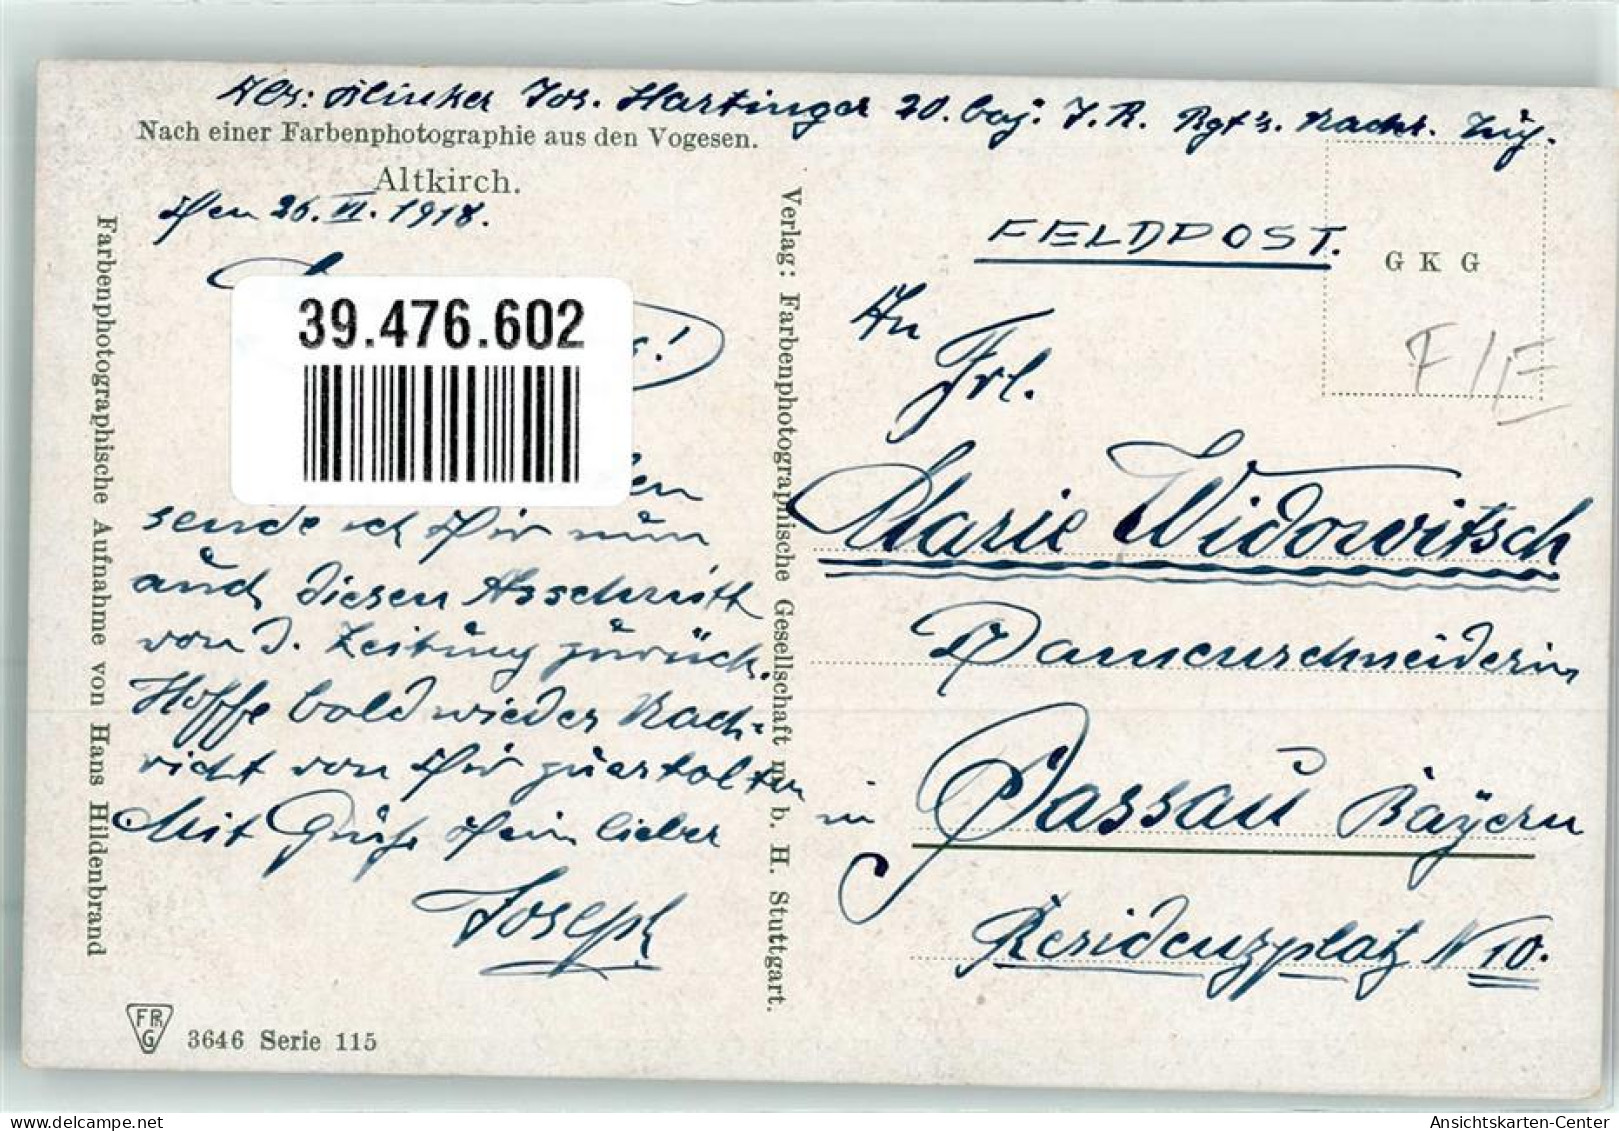 Abs: Blinker Jos. Hartinger 20. bay. J. R. Rgt's. Nachr. Zug.
Nach einer Farbenphotographie aus den Vogesen.
Altkirch.
Den 26. VI. 1918.
39.476.602
sende ich Dir nun
auch diesen Ausschnitt
von d. Zeitung zurück.
Hoffe bald wieder Nach-
richt von Dir zu erhalten
Mit Gruß Dein lieber
Joseph
Farbenphotographische Aufnahme von Hans Hildenbrand
FPhG
3646 Serie 115
Verlag: Farbenphotographische Gesellschaft m. b. H. Stuttgart.
FELDPOST.
G K G
F/E
An
Frl.
Marie Widowitsch
Damenschneiderin
in Passau Bayern
Residenzplatz N 10.
Ansichtskarten-Center